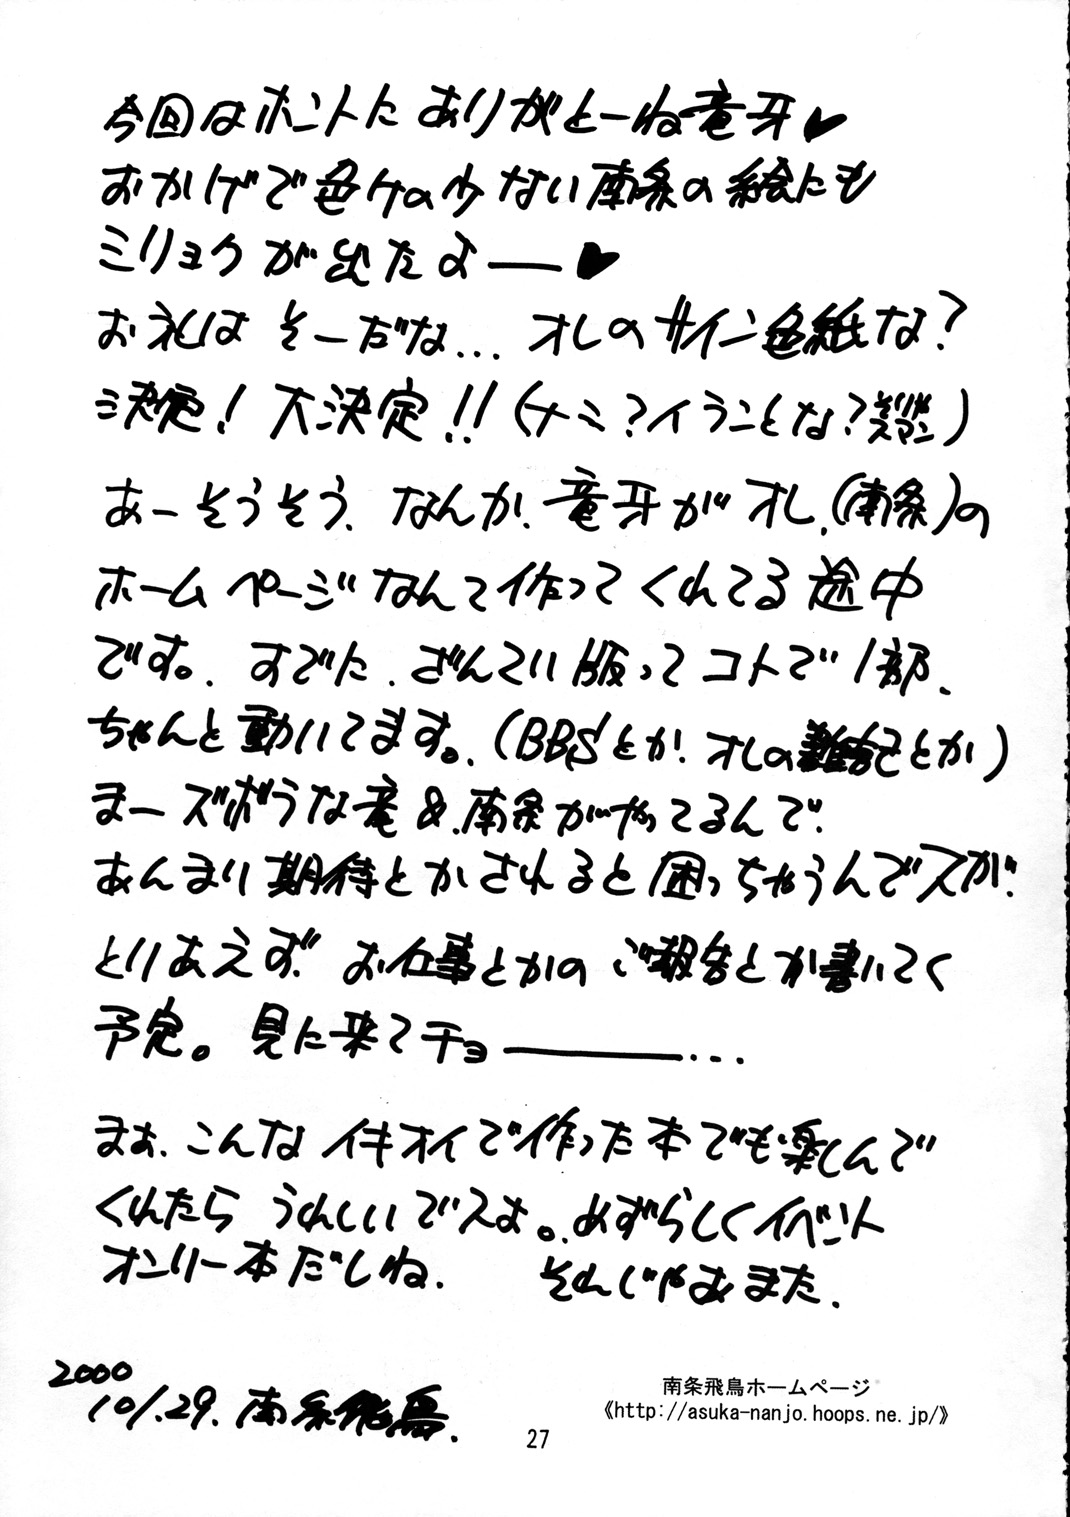 今回はホントにありがとーね竜牙♥
おかげで色ケの少ない南条の絵にも
ミリョクが出たよ――♥
お礼はそーだな...オレのサイン色紙な?
決定!大決定!!(ナミ?イランことな?そりゃスマン)
あーそうそう、なんか、竜牙がオレ、(南条)の
ホームページなんて作ってくれてる途中
です。すでに、ざんてい版ってコトで1部、
ちゃんと動いてます。(BBSとか!オレの雑記とか)
まーズボラな竜&南条がやってるんで、
あんまり期待とかされると困っちゃうんでスが、
とりあえず、お仕事とかのご報告とか書いてく
予定。見に来てチョ――――...
まぁ、こんなイキオイで作った本でも楽しんで
くれたらうれしいでスよ。めずらしくイベント
オンリー本だしね。 それじゃあまた。
2000
10/.29.南条飛鳥.
南条飛鳥ホームページ
《http://asuka-nanjo.hoops.ne.jp/》
27